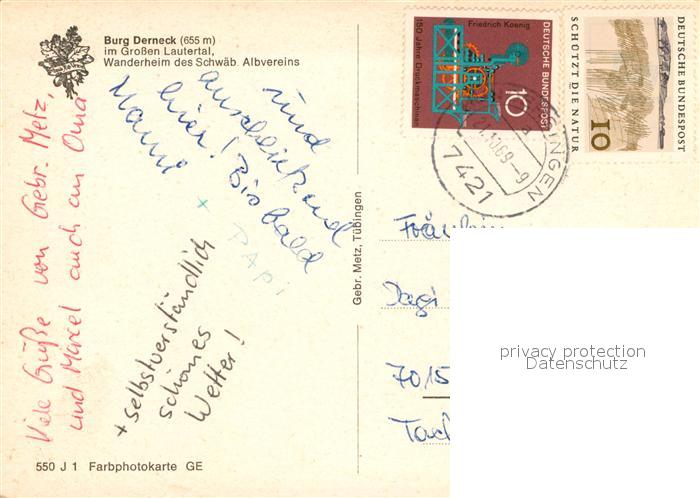 Burg Derneck (655 m)
im Großen Lautertal,
Wanderheim des Schwäb. Albvereins
Viele Grüße von Gebr. Metz,
und Marcel auch an Oma
sind
anschließend
hier! Bis bald
Mami
+ PAPi
+ selbstverständlich
schönes
Wetter!
Gebr. Metz, Tübingen
550 J 1 Farbphotokarte GE
Friedrich Koenig
150 Jahre Druckmaschinen
10
DEUTSCHE BUNDESPOST
SCHÜTZT DIE NATUR
10
DEUTSCHE BUNDESPOST
INGEN
69-9
7421
Fräulein
Dagi
7015
privacy protection
Datenschutz